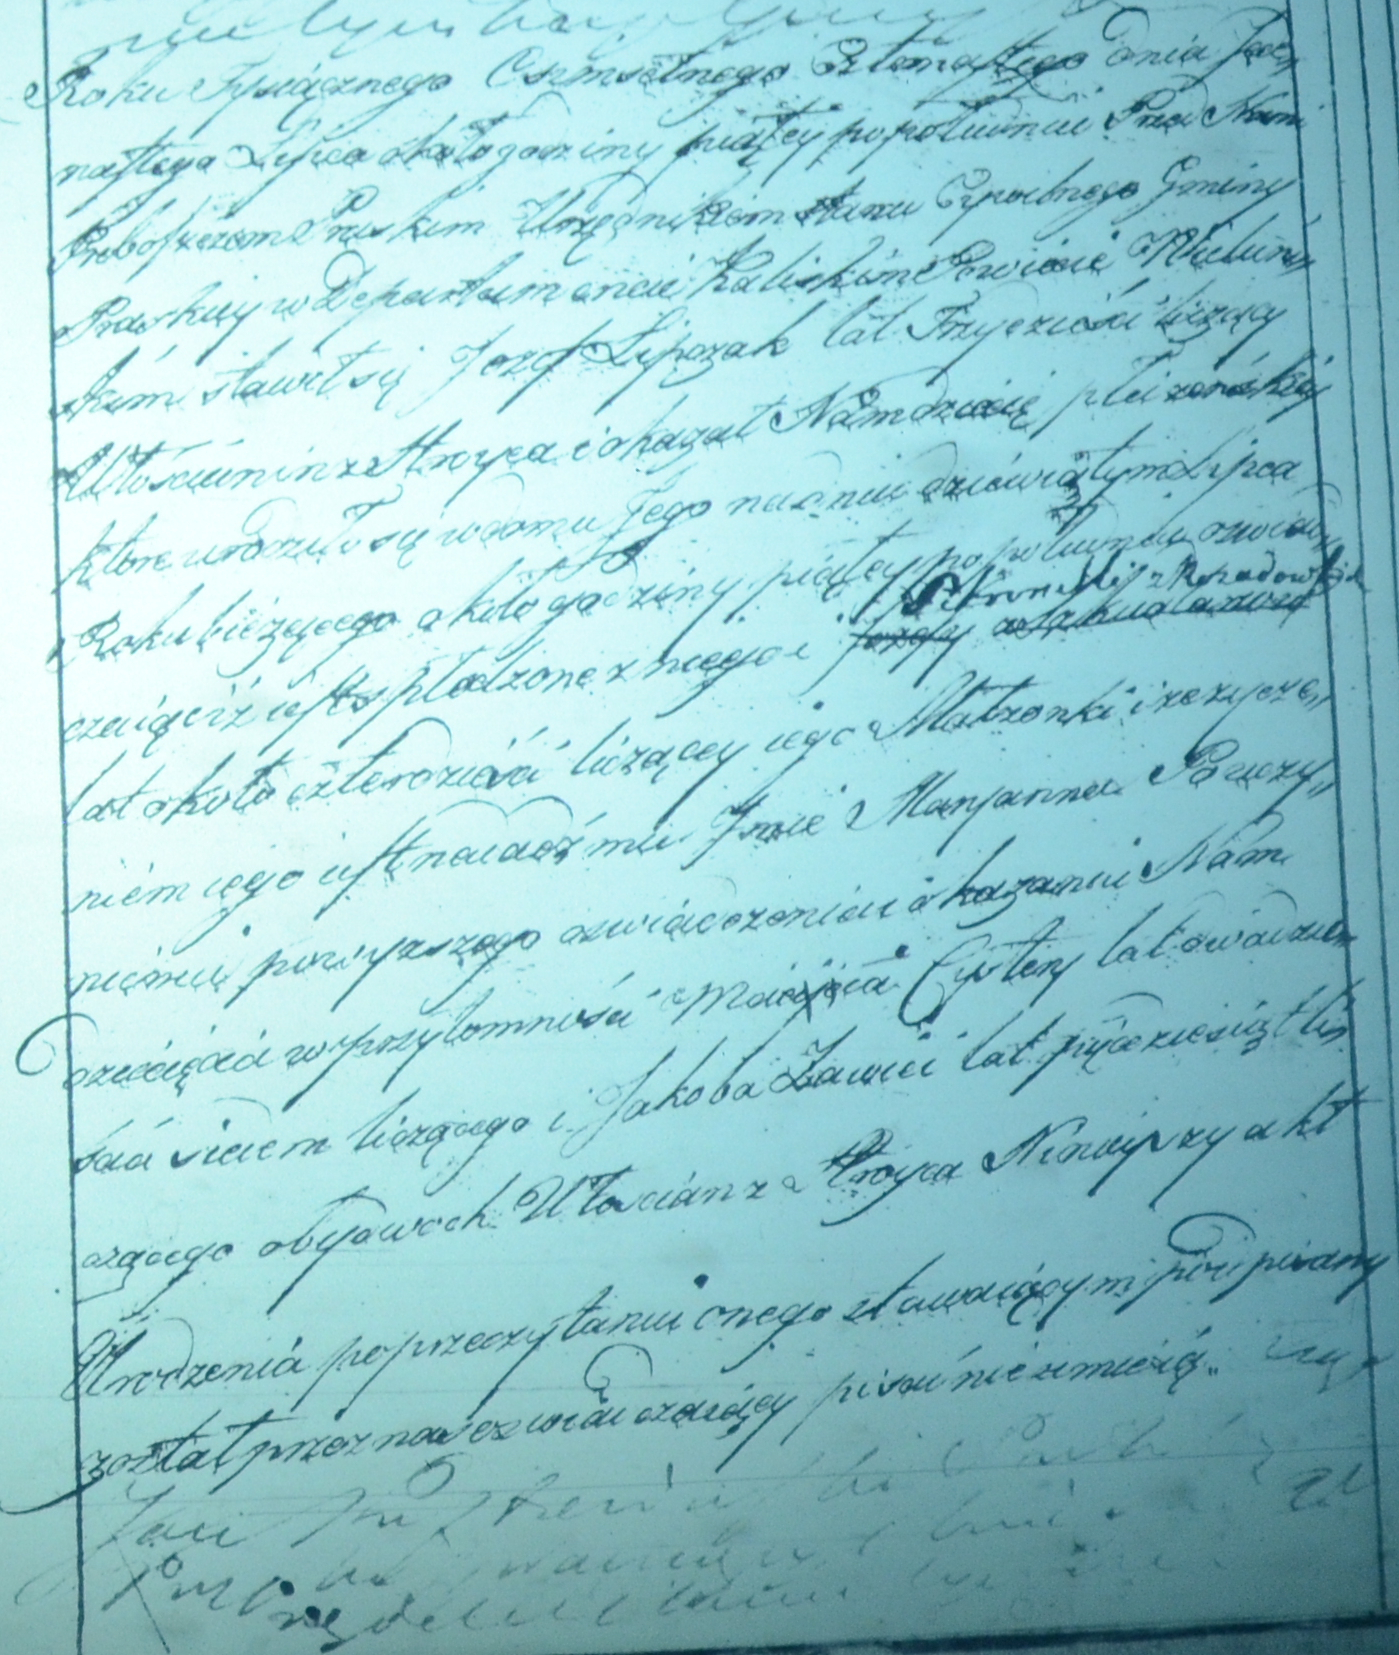 Roku Tysiącznego Osmsetnego Czternastego dnia Jede„
nastego Lipca około godziny piątey popołudniu Przed Nami
Proboszczem Praskim Urzędnikiem Stanu Cywilnego Gminy
Praskiey w Departamencie Kaliskim Powiecie Wieluń„
skim stawił się Jozef Lipczak lat Trzydzieści liczący
Włościanin ze Stroyca i okazał Nam dziecię płci zeńskiey
ktore urodziło się w domu Jego na dniu dziewiątym Lipca
Roku bieżącego około godziny piątey popołudniu oswiad„
Petronelli z
czaiąc iż iest spłodzone z niego i Jozefy
lat około czterdzieści liczącey iego Małżonki i że życze„
niem iego iest nadać mu Jmie Maryanna Pouczy„
nieniu powyższego oswiadczenia i okazaniu Nam
dziecięcia w przytomności Macieia lat dwadzie„
ścia siedem liczącego i Jakoba Zawiei lat pięćdziesiąt li„
czącego obydwoch Włościan z Stroyca Ninieyszy akt
Urodzenia po przeczytaniu onego stawaiącym podpisany
został przez nas oswiadczaiący pisać nie umieią„